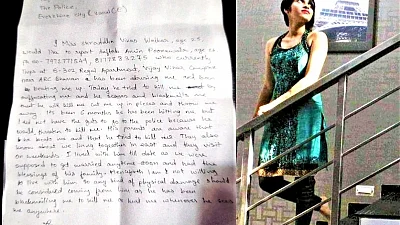 The Police,
I Miss Shraddha Vikas Walkar, age 25
would like to report Aftab Amin Poonawala, age 26
who currently
lives at B-302, Regal Apartment, Vijay Vihar Complex
near has been abusing me, and been
beating me up. Today he tried to kill me by
suffocating me and he scares and blackmails me
that he will kill me, cut me up in pieces and throw me
away. It's been 6 months he has been hitting me but
I did not have the guts to go to the police because he
would threaten to kill me. His parents are aware that
he beats me and that he tried to kill me. They also
know about we living together in east and they visit
on weekends. I lived with him till date as we were
supposed to get married anytime soon and had the
blessings of his family. Henceforth I am not willing
to live with him so any kind of physical damage should
be considered coming from him as he has been
blackmailing me to kill me or hurt me whenever he sees
me anywhere.